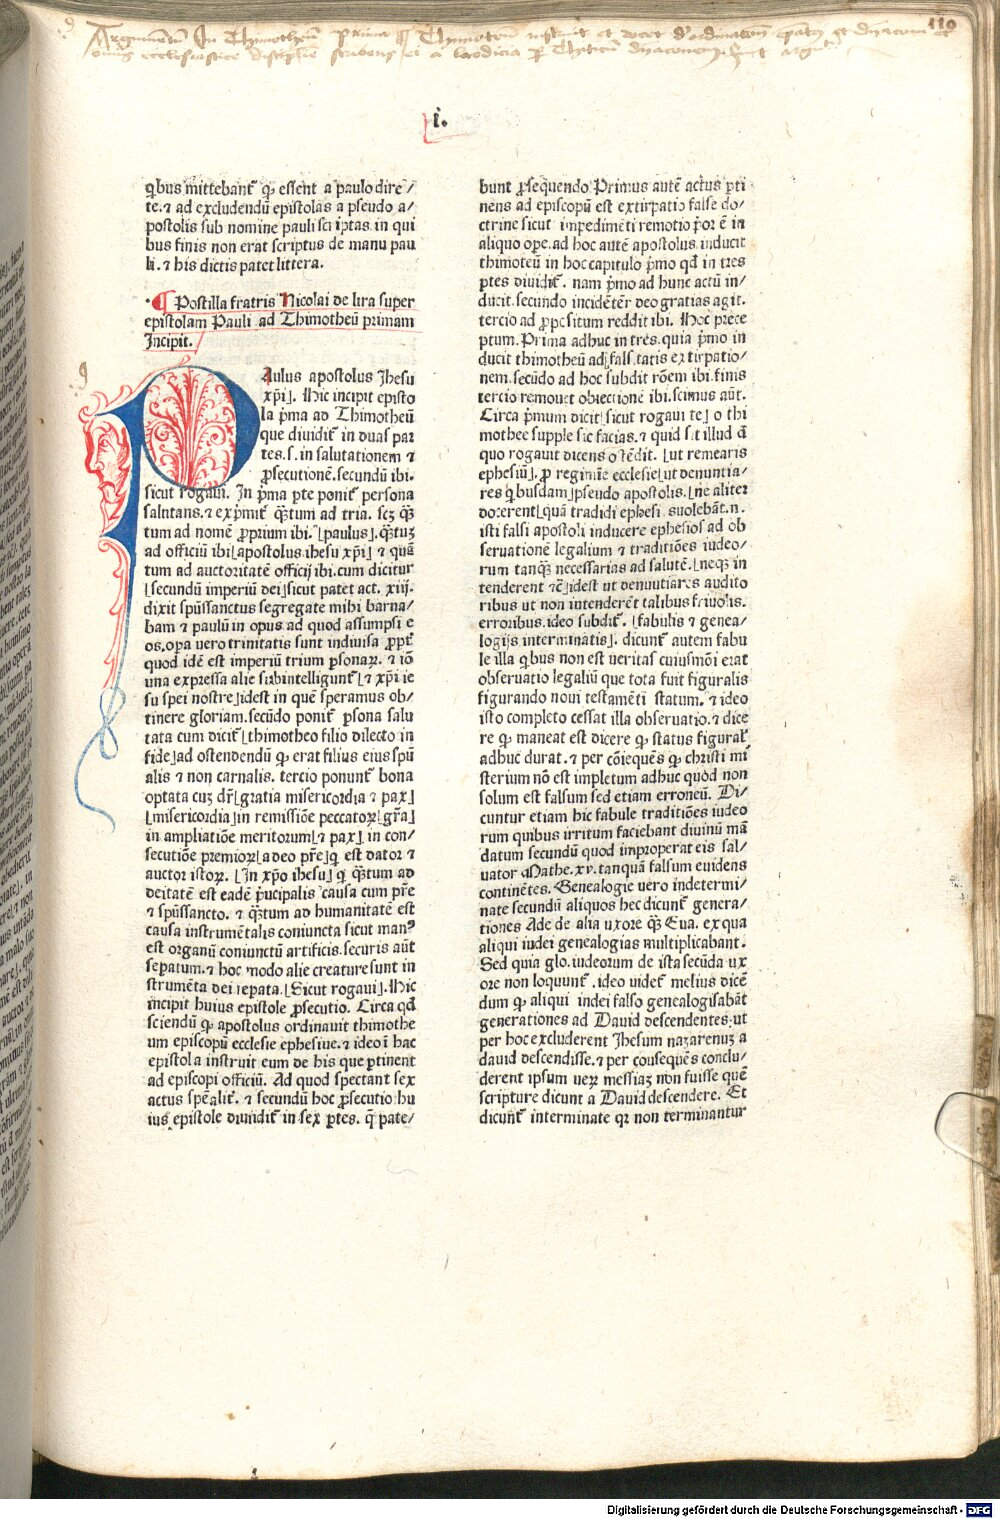 Argumentum In Thymotheum prima ¶ Thymoteum instruit et docet d' ordinatione epatus et dyaconi
omnis ecclesiastice discipline scribens ei a laodicia p Thyticum dyaconem
110
i.
qͥbus mittebant᷑ qꝫ essent a paulo dire/
te.⁊ ad excludendū epistolas a pseudo a/
postolis sub nomine pauli scriptas in qui
bus finis non erat scriptus de manu pau
li.⁊ his dictis patet littera.
¶ Postilla fratris Nicolai de lira super
epistolam Pauli ad Thimotheū primam
Incipit.
PAulus apostolus Jhesu
xp̄i⌋. Hic incipit episto
la p̄ma ad Thimotheū
que diuidit᷑ in duas par
tes.s.in salutationem ⁊
ꝓsecutionē.secundū ibi.
sicut rogaui. In p̄ma ꝑte ponit᷑ persona
salutans.⁊ exp̄mit᷑ qꝫtum ad tria. scꝫ qꝫ
tum ad nomē ꝓprium ibi.⌊paulus⌋.qꝫtuꝫ
ad officiū ibi⌊apostolus ihesu xp̄i⌋ ⁊ quā
tum ad auctoritatē officij ibi.cum dicitur
⌊secundū imperiū dei⌋sicut patet act. xiij.
dixit spūssanctus segregate mihi barna/
bam ⁊ paulū in opus ad quod assumpsi e
os.opa vero trinitatis sunt indiuisa ꝓpt᷑
quod idē est imperiū trium ꝑsonaꝝ. ⁊ iō
una expressa alie subintelligunt᷑ ⌊⁊ xp̄i ie
su spei nostre⌋idest in quē speramus ob/
tinere gloriam.secūdo ponit᷑ ꝑsona salu
tata cum dicit᷑⌊thimotheo filio dilecto in
fide⌋ad ostendendū qꝫ erat filius eius spū
alis ⁊ non carnalis. tercio ponunt᷑ bona
optata cuꝫ dr̄⌊gratia misericordia ⁊ pax⌋
⌊misericordia⌋in remissiōe peccatoꝝ⌊gr̄a⌋
in ampliatiōe meritorum⌊⁊ pax⌋ in con/
secutiōe premioꝝ⌊a deo pr̄e⌋qͥ est dator ⁊
auctor istoꝝ. ⌊In xp̄o ihesu⌋ qͥ qꝫtum ad
deitatē est eadē p̄ncipalis causa cum pr̄e
⁊ spūssancto. ⁊ qꝫtum ad humanitatē est
causa instrumētalis coniuncta sicut manꝰ
est organū coniunctū artificis.securis aūt
separatum.⁊ hoc modo alie creature sunt in
strumēta dei separata.⌊Sicut rogaui⌋.Hic
incipit huius epistole ꝓsecutio. Circa qd̄
sciendū qꝫ apostolus ordinauit thimothe
um episcopū ecclesie ephesiue.⁊ ideo ī hac
epistola instruit eum de his que ꝑtinent
ad episcopi officiū. Ad quod spectant sex
actus spēalit᷑. ⁊ secundū hoc ꝓsecutio hu
ius epistole diuidit᷑ in sex ꝑtes. q̄ pate/
bunt ꝓsequendo Primus autē actus ꝑti
nens ad episcopū est extirpatio false do/
ctrine sicut impedimēti remotio p̄or ē in
aliquo ope.ad hoc autē apostolus inducit
thimoteū in hoc capitulo p̄mo qd̄ in tres
ptes diuidit᷑. nam p̄mo ad hunc actū in/
ducit.secundo incidēter deo gratias agit.
tercio ad ꝓpositum reddit ibi. Hoc prece
ptum. Prima adhuc in tres. quia p̄mo in
ducit thimotheū ad falsitatis extirpatio/
nem.secūdo ad hoc subdit rōem ibi.finis
tercio remouet obiectionē ibi.scimus aūt.
Circa p̄mum dicit⌊sicut rogaui te⌋ o thi
mothee supple sic facias.⁊ quid sit illud qd
quo rogauit dicens ostēdit. ⌊ut remearis
ephesiū⌋. ꝓ regimīe ecclesie⌊ut denuntia/
res qͥbusdam⌋pseudo apostolis.⌊ne aliter
docerent⌋quā tradidi ephesi. suolebāt.n.
isti falsi apostoli inducere ephesios ad ob
seruationē legalium ⁊ traditiōes iudeo/
rum tanqꝫ necessarias ad salutē.⌊neqꝫ in
tenderent ⁊c̄⌋idest ut denuntiares audito
ribus ut non intenderēt talibus friuolis.
erroribus.ideo subdit᷑. ⌊fabulis ⁊ genea/
logijs interminatis⌋. dicunt᷑ autem fabu
le illa qͥbus non est veritas cuiusmōi erat
obseruatio legaliū que tota fuit figuralis
figurando noui testamēti statum. ⁊ ideo
isto completo cessat illa obseruatio.⁊ dice
re qꝫ maneat est dicere qꝫ status figural᷑
adhuc durat. ⁊ per cōsequēs qꝫ christi mi
sterium nō est impletum adhuc quod non
solum est falsum sed etiam erroneū. Di/
cuntur etiam hic fabule traditiōes iudeo
rum quibus irritum faciebant diuinū mā
datum secundū quod improperat eis sal/
uator Mathe.xv.tanquā falsum euidens
continētes. Genealogie vero indetermi/
nate secundū aliquos hec dicunt᷑ genera/
tiones Ade de alia uxore qꝫ Eua. ex qua
aliqui iudei genealogias multiplicabant.
Sed quia glo.iudeorum de ista secūda ux
ore non loquunt᷑. ideo videt᷑ melius dicē
dum qꝫ aliqui iudei falso genealogisabāt
generationes ad Dauid descendentes.ut
per hoc excluderent Jhesum nazarenuꝫ a
dauid descendisse.⁊ per consequēs conclu/
derent ipsum ueꝝ messiaꝫ non fuisse quē
scripture dicunt a Dauid descendere. Et
dicunt᷑ interminate qꝛ non terminantur
Digitalisierung gefördert durch die Deutsche Forschungsgemeinschaft - DFG